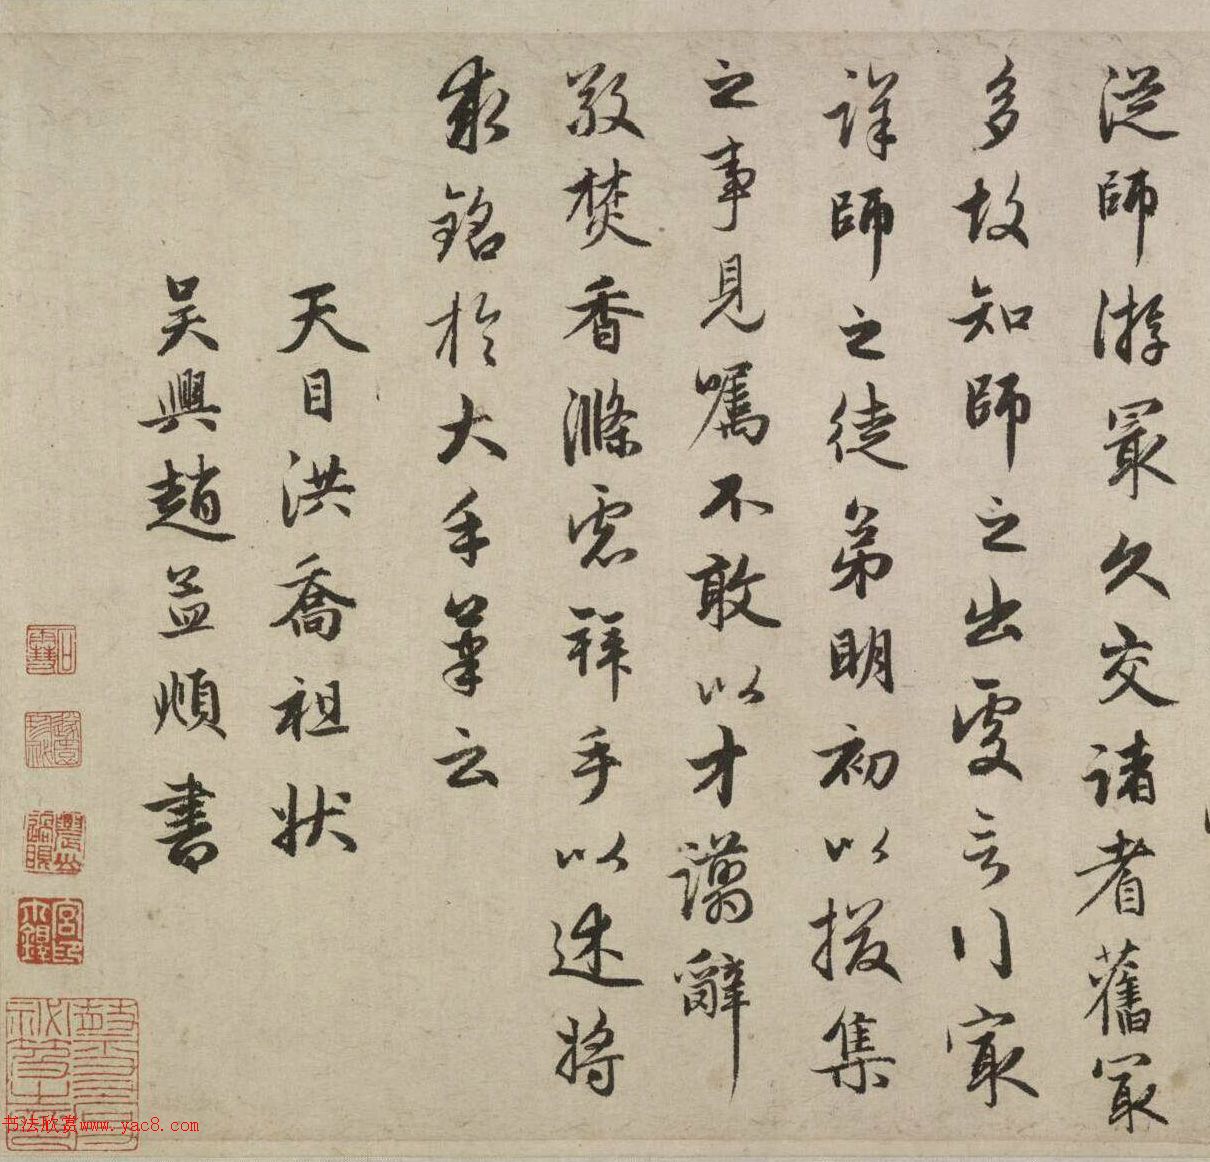 從師游冣久交諸耆舊冣
多故知師之出處言行冣
詳師之徒弟明初以掇集
之事見囑不敢以才謭辭
敬焚香滌慮拜手以述將
求銘於大手筆云
天目洪喬祖狀
吳興趙孟頫書
书法欣赏www.yac8.com